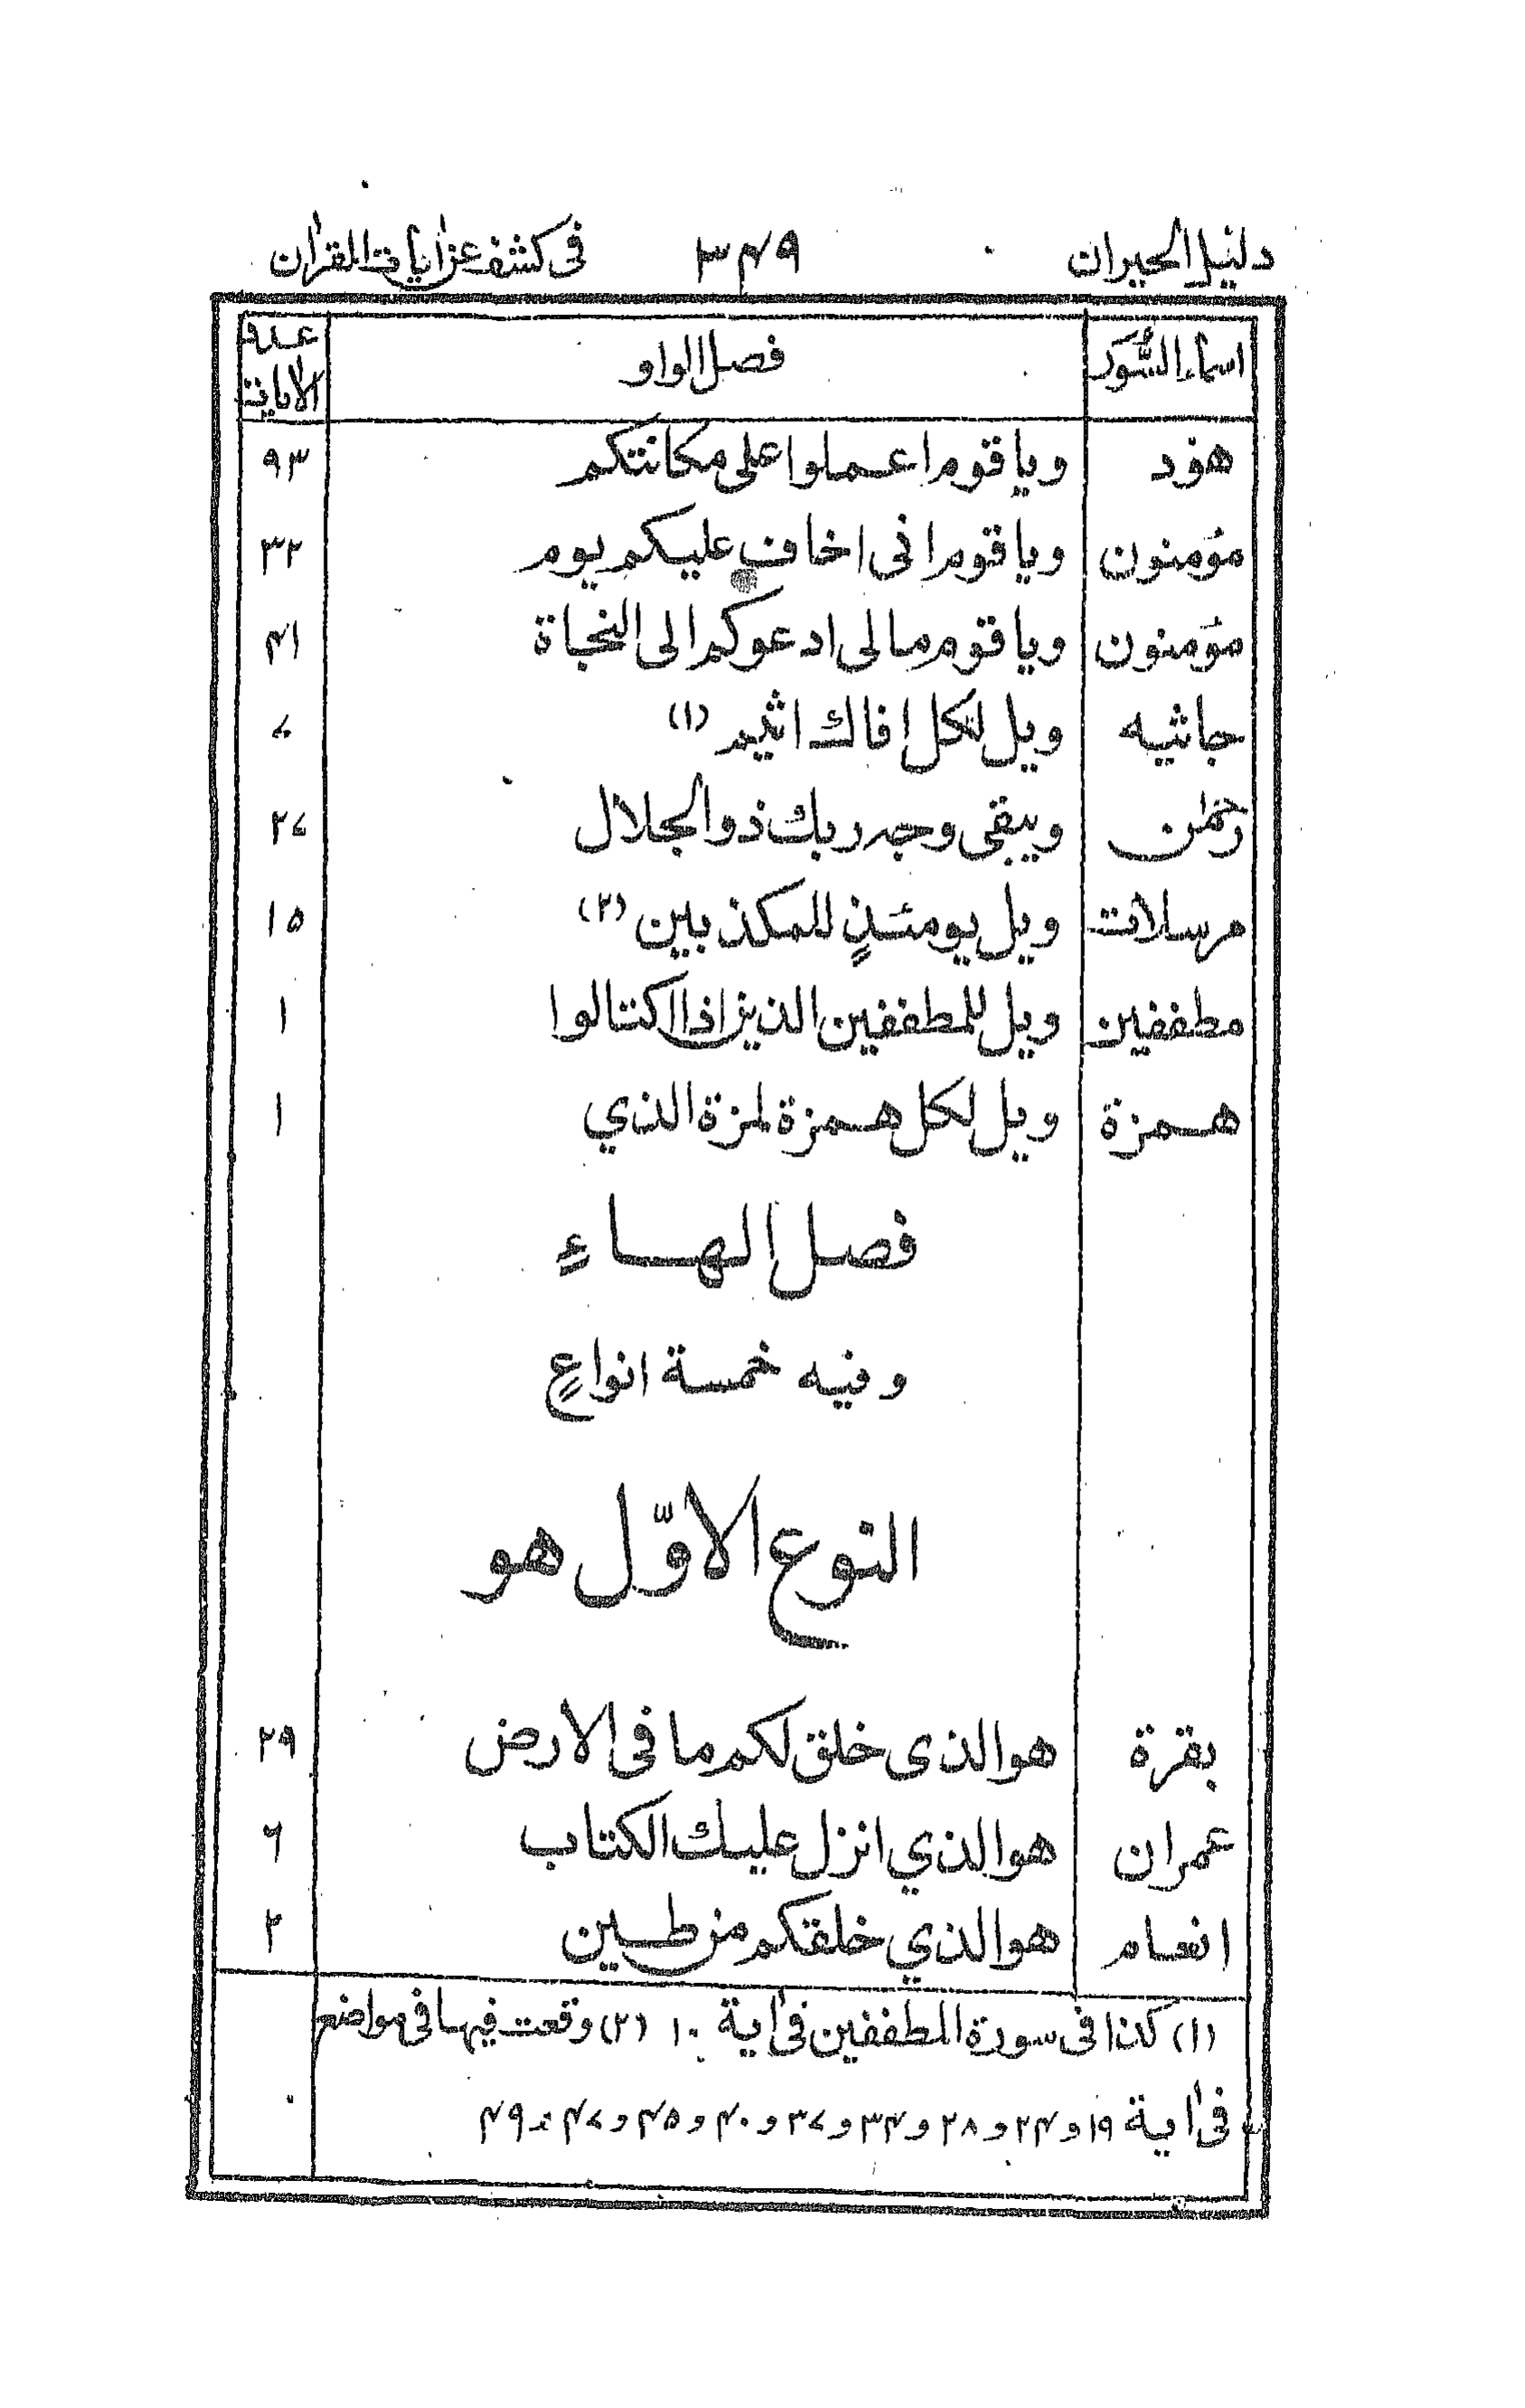 دليل الحيران ۳۴۹ فى كشف عن اٰيات القراٰن
اسماء السُّوَر فصل الواو عدد الاٰيات
هود وياقوم اعملوا على مكانتكم ۹۳
مؤمنون وياقوم انى اخاف عليكم يوم ۳۲
مؤمنون وياقوم مالى ادعوكم الى النجاة ۴۱
جاثيه ويل لكل افاك اثيم (۱) ۷
رحمٰن ويبقى وجه ربك ذوالجلال ۲۷
مرسلات ويل يومئذٍ للمكذبين (۲) ۱۵
مطففين ويل للمطففين الذين اذا اكتالوا ۱
همزة ويل لكل همزة لمزة الذي ۱
فصل الهاءِ
وفيه خمسة انواعٍ
النوع الاوّل هو
بقرة هوالذى خلق لكم ما فى الارض ۲۹
عمران هوالذي انزل عليك الكتاب ۶
انعام هوالذي خلقكم من طين ۲
(۱) كذا فى سورة المطففين فى اٰية ۱۰ (۲) وقعت فيها فى مواضع
فى اٰية ۱۹ و ۲۴ و ۲۸ و ۳۴ و ۳۷ و ۴۰ و ۴۵ و ۴۷ و ۴۹